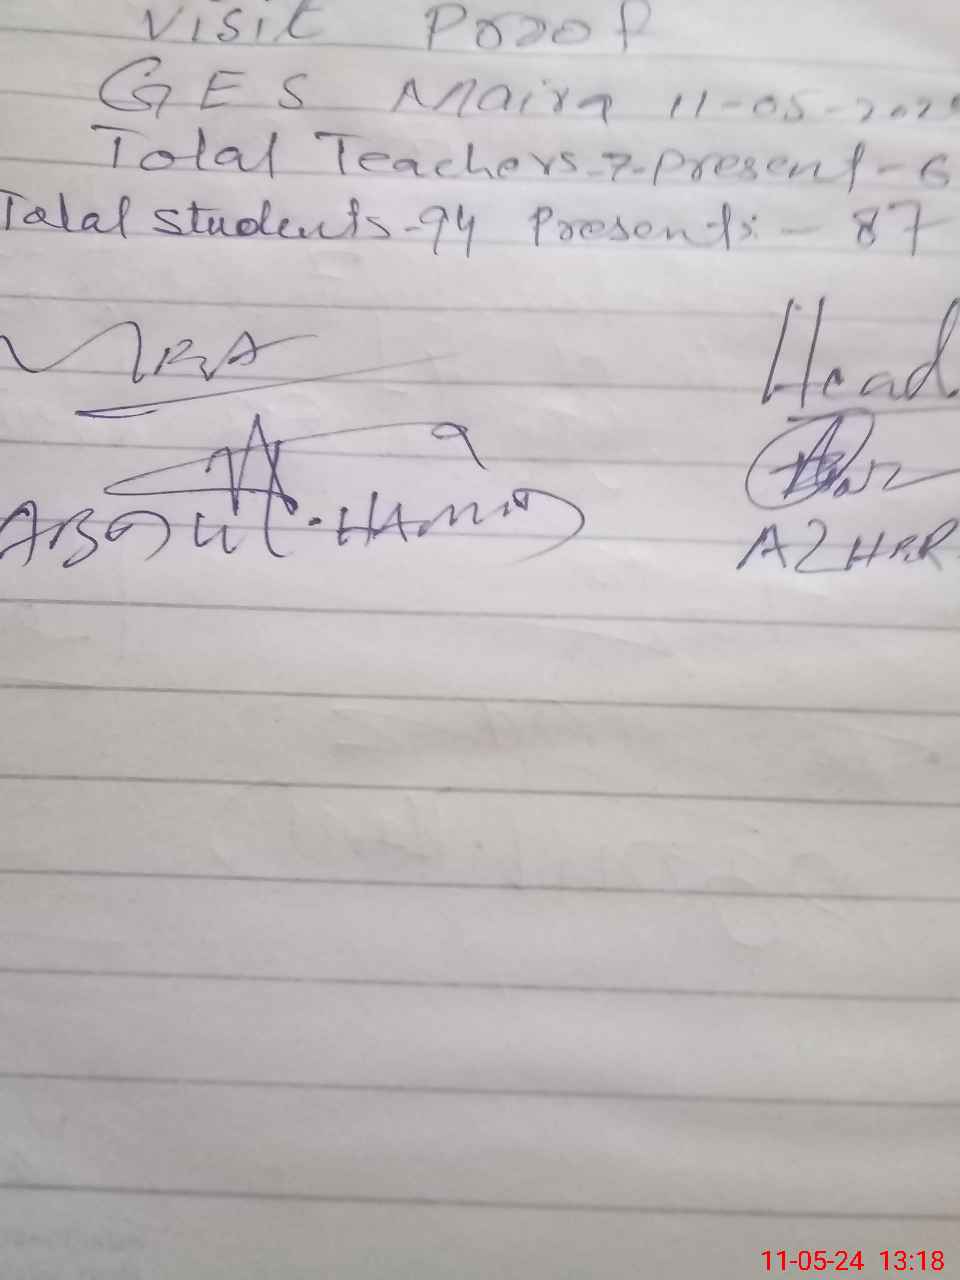 Visit Proof
GES Maira 11-05-202
Total Teachers-7-present-6
Total Students-94 Presents:- 87
Head
ABDUL.HAMID
AZHAR
11-05-24 13:18